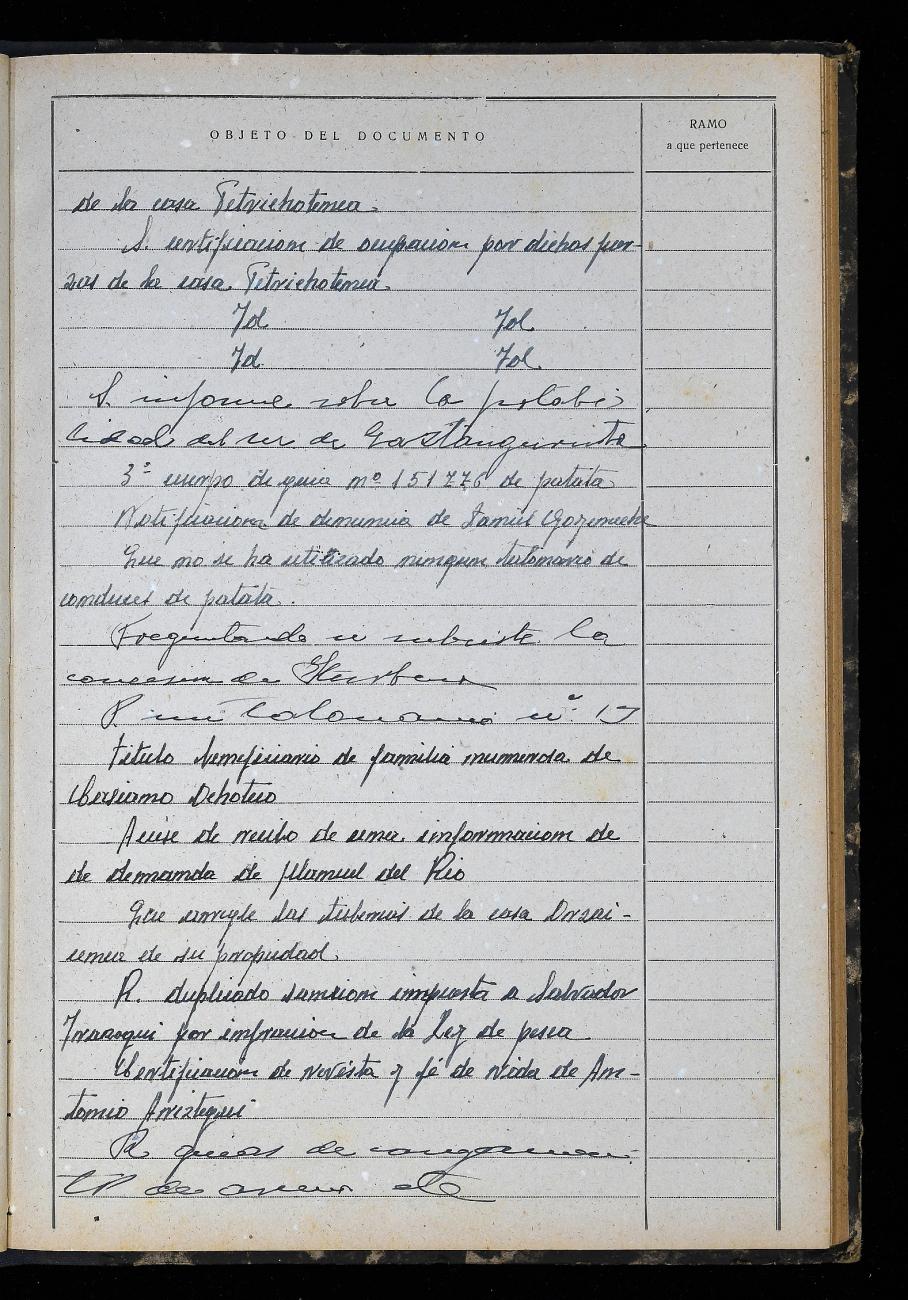 OBJETO DEL DOCUMENTO
RAMO
a que pertenece
de la casa Petrichotenea.
S. certificacion de ocupacion por dichas fuer-
zas de la casa Petrichotenea.
Id Id
Id Id
S. informe sobre la potabi
lidad del de
3º cuerpo de guia nº 151776 de patata
Notificacion de denuncia de
Que no se ha utilizado ningun talonario de
conduces de patata.
Preguntando si subsiste la
concesion de
R. un talonario nº 17
titulo beneficiario de familia numerosa de
Casiano
Acuse de recibo de una informacion de
de demanda de Manuel del Rio
Que arregle las tuberias de la casa
de su propiedad.
R. duplicado sancion impuesta a Salvador
por infracion de la Ley de pesca
Certificacion de revista y fé de vida de An-
tonio Ariztegui
R guias de
de